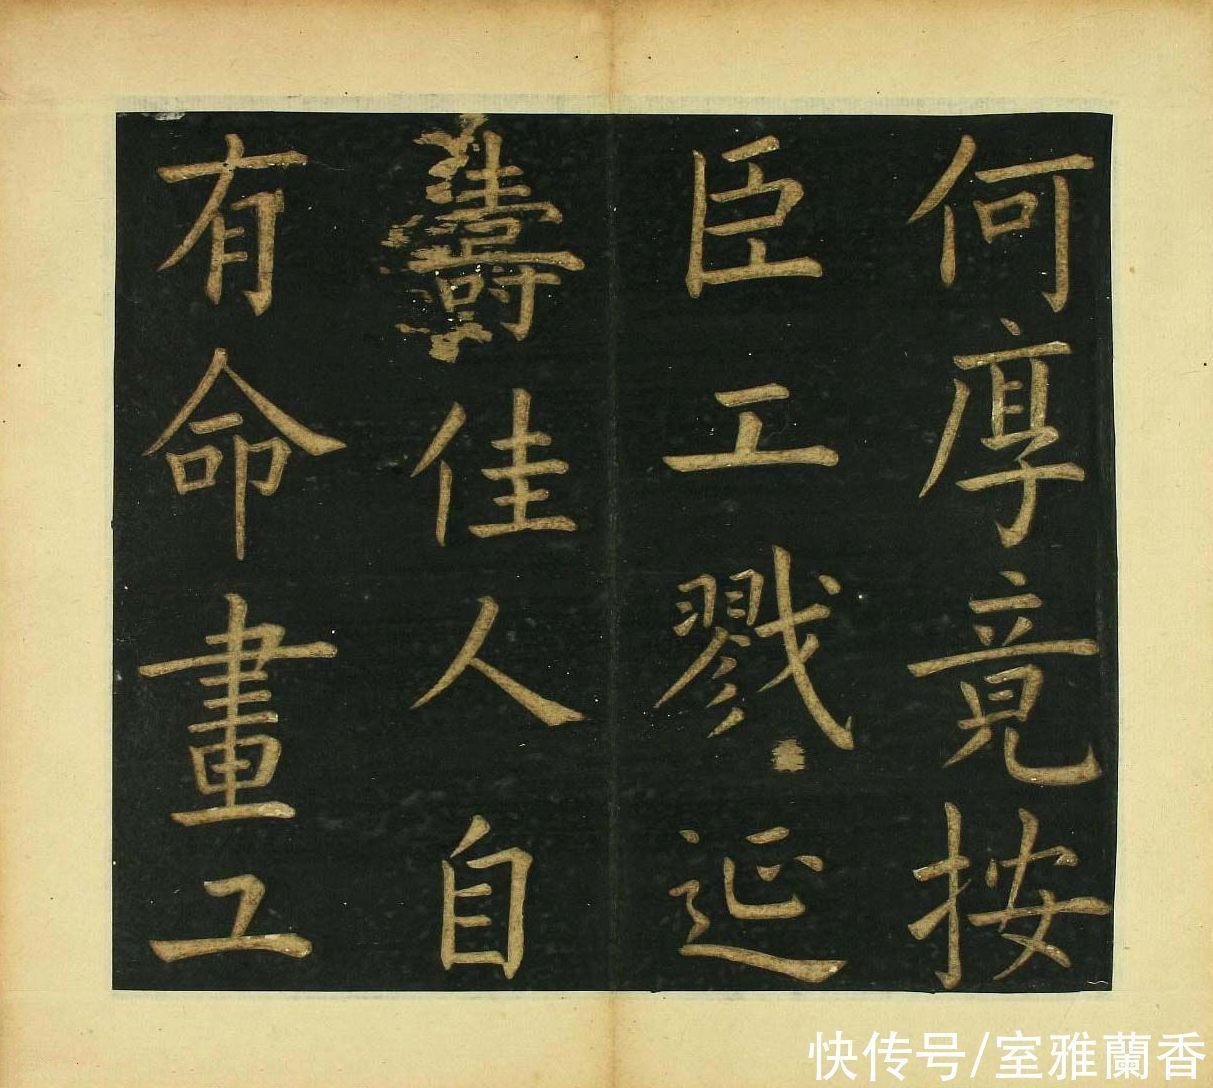 何厚竟按
臣工戮延
壽佳人自
有命畫工
快传号/室雅蘭香